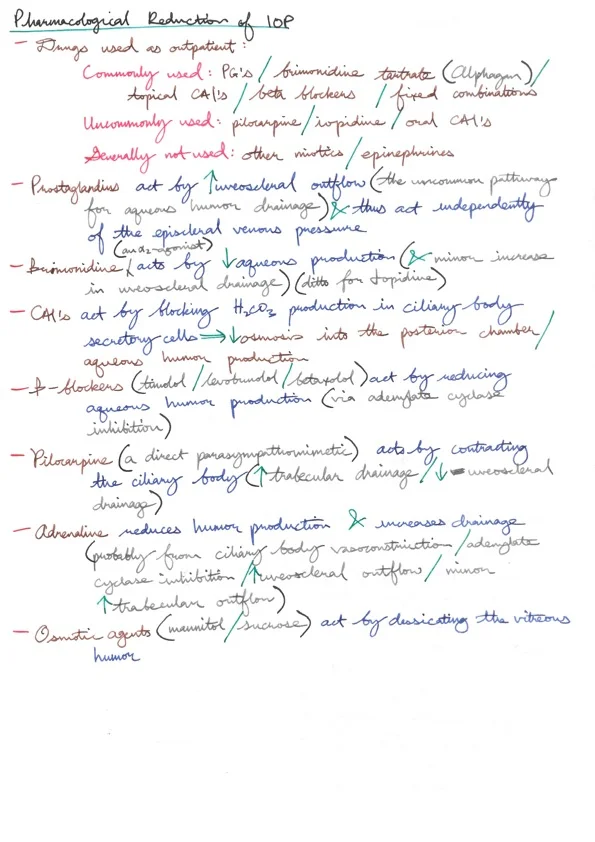 Pharmacological Reduction of IOP
- Drugs used as outpatient:
Commonly used: PG's / brimonidine tartrate (Alphagan) /
topical CAI's / beta blockers / fixed combinations
Uncommonly used: pilocarpine / iopidine / oral CAI's
Generally not used: other miotics / epinephrines
- Prostaglandins act by ↑uveoscleral outflow (the uncommon pathway
for aqueous humor drainage) & thus act independently
of the episcleral venous pressure
(an α2-agonist)
- Brimonidine acts by ↓aqueous production (& minor increase
in uveoscleral drainage) (ditto for Iopidine)
- CAI's act by blocking H2CO3 production in ciliary body
secretory cells ⟹ ↓osmosis into the posterior chamber /
aqueous humor production
- β-blockers (timolol / levobunolol / betaxolol) act by reducing
aqueous humor production (via adenylate cyclase
inhibition)
- Pilocarpine (a direct parasympathomimetic) acts by contracting
the ciliary body (↑trabecular drainage / ↓ uveoscleral
drainage)
- Adrenaline reduces humor production & increases drainage
(probably from ciliary body vasoconstriction / adenylate
cyclase inhibition / ↑uveoscleral outflow / minor
↑trabecular outflow)
- Osmotic agents (mannitol / sucrose) act by dessicating the vitreous
humor